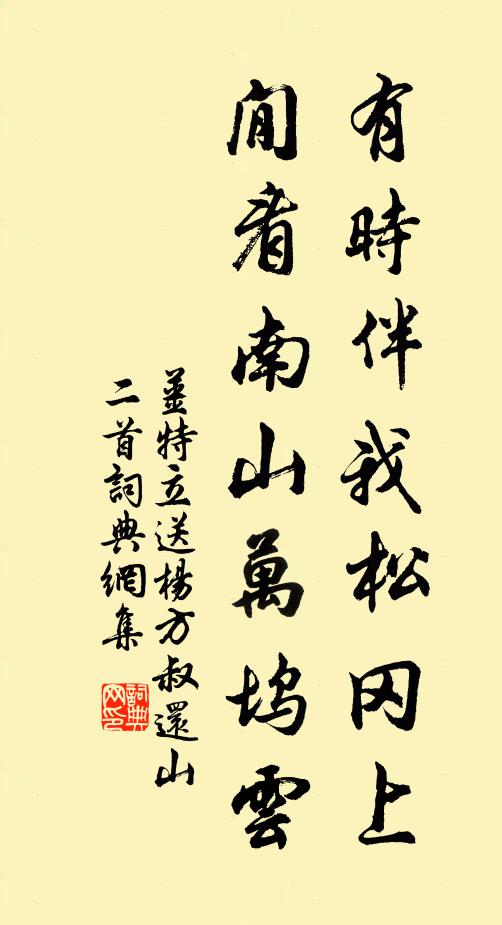 有時伴我松冈上
閒看南山萬塢雲
姜特立送楊方叔還山
二首詞典網集
詞典
网印